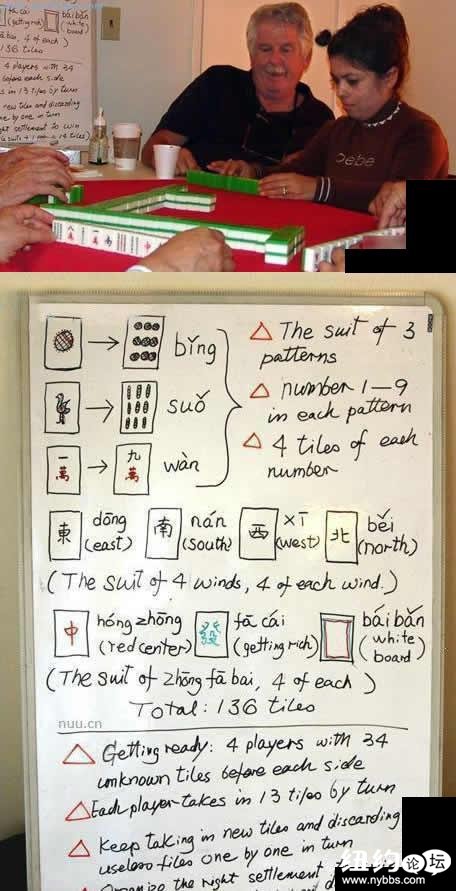 fā cái
(getting rich)
bái bǎn
(white
board)
fā bai, 4 of each)
136 tiles
4 players with 34
before each side
in 13 tiles by turn
new tiles and discarding
one by one in turn
right settlement to win
Debe
bǐng
suǒ
一
萬
九
萬
wàn
△ The suit of 3
patterns
△ number 1—9
in each pattern
△ 4 tiles of each
number
東
dōng
(east)
南
nán
(south)
西
xī
(west)
北
běi
(north)
(The suit of 4 winds, 4 of each wind.)
中
hóng zhōng
(red center)
發
fā cái
(getting rich)
bái bǎn
(white
board)
(The suit of zhōng fā bai, 4 of each)
Total: 136 tiles
nuu.cn
△ Getting ready: 4 players with 34
unknown tiles before each side
△ Each player takes in 13 tiles by turn
△ Keep taking in new tiles and discarding
useless tiles one by one in turn
Organize the right settlement
纽约论坛
www.nybbs.com